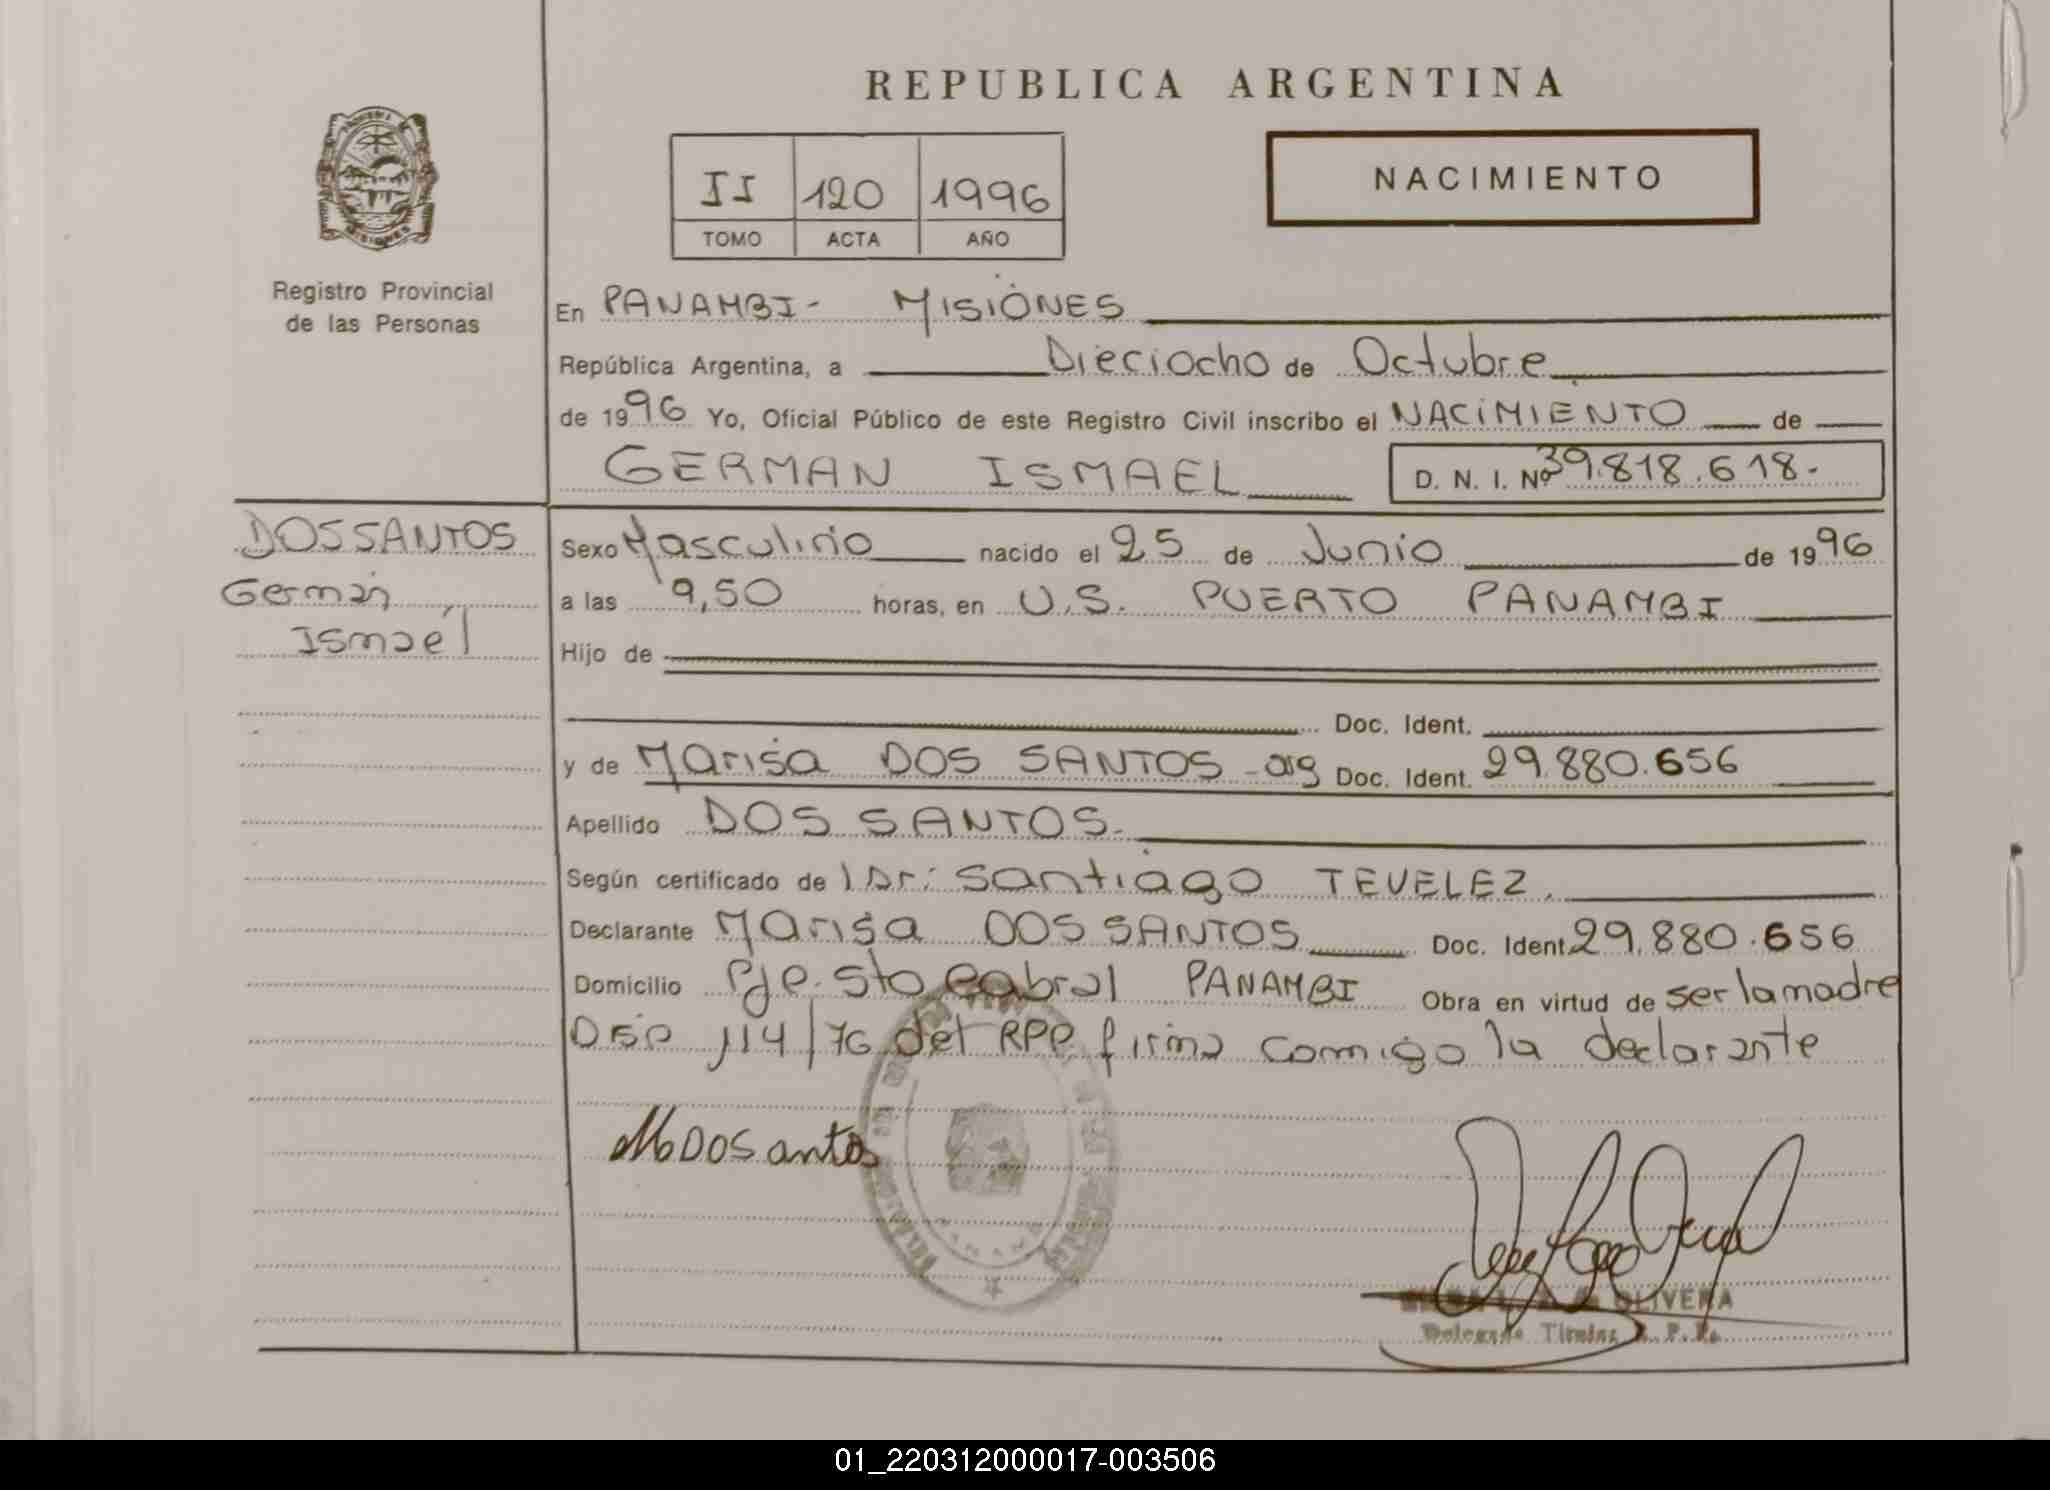 REPUBLICA ARGENTINA
II 120 1996
TOMO ACTA AÑO
NACIMIENTO
Registro Provincial
de las Personas
En PANAMBI - MISIONES
República Argentina, a Dieciocho de Octubre
de 1996 Yo, Oficial Público de este Registro Civil inscribo el NACIMIENTO de
GERMAN ISMAEL D. N. I. Nº 39.818.618.-
DOS SANTOS
German
Ismael
Sexo Masculino nacido el 25 de Junio de 1996
a las 9,50 horas, en U.S. PUERTO PANAMBI
Hijo de
Doc. Ident.
y de Marisa DOS SANTOS - arg Doc. Ident. 29.880.656
Apellido DOS SANTOS.-
Según certificado de Dr: Santiago TEVELEZ.
Declarante Marisa DOS SANTOS Doc. Ident. 29.880.656
Domicilio Pje. Sto Cabral PANAMBI Obra en virtud de ser la madre
Disp 114/76 del RPP firma comigo la declarante
M Dosantos
PANAMBI
OLIVERA
Delegado Titular R. P. P.
01_220312000017-003506